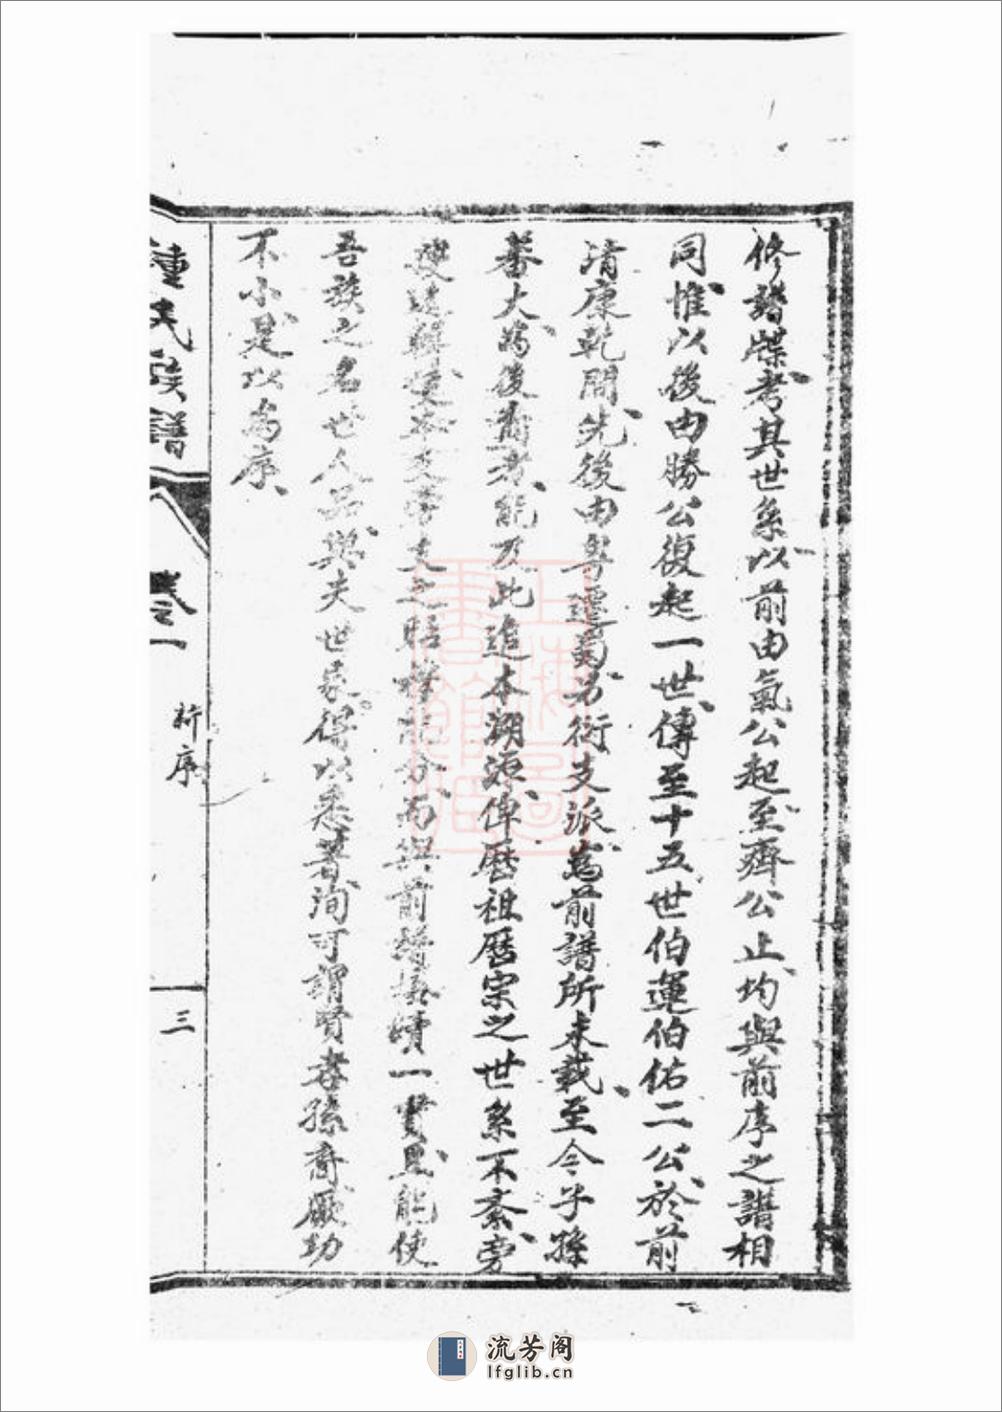 修譜牒考其世系以前由氣公起至齊公止均與前序之譜相
同惟以後由勝公復起一世傳至十五世伯運伯佑二公於前
清康乾間先後由粵遷蜀另衍支派為前譜所未載至今子孫
蕃大為後裔者能及此追本溯源俾歷祖歷宗之世系不紊旁
搜遠輯使本支旁支之昭穆分而與前譜接續一貫且能使
吾族之名世人品與夫世家得以悉著洵可謂賢孝孫裔厥功
不小是以為序
鍾氏族譜
卷之一
新序
三
上海圖書館藏
流芳阁
lfglib.cn